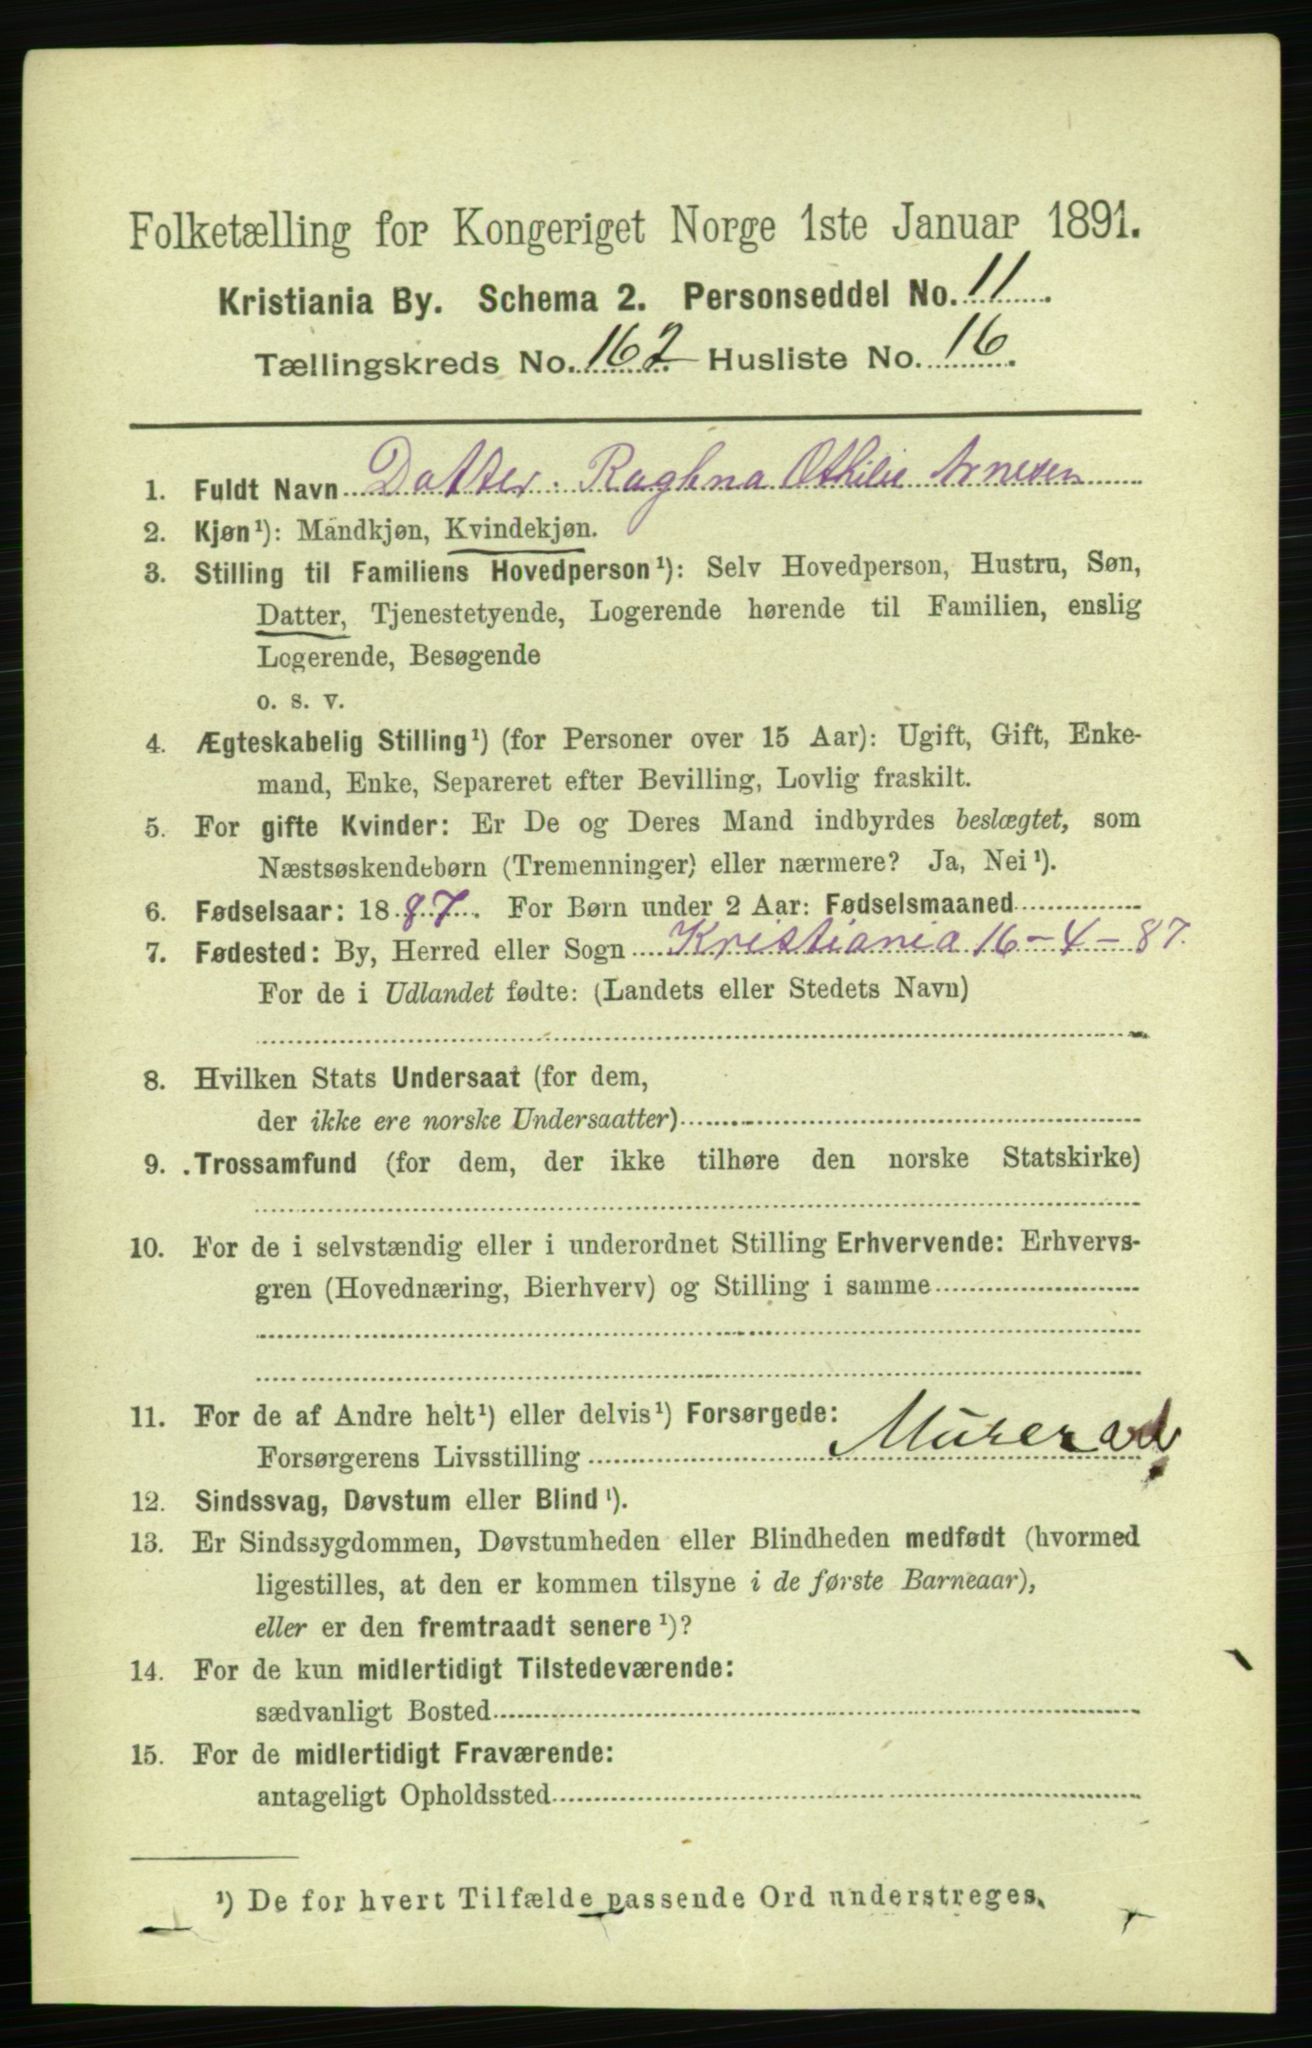 Folketælling for Kongeriget Norge 1ste Januar 1891.
Kristiania By. Schema 2. Personseddel No. 11.
Tællingskreds No. 162 Husliste No. 16.
1. Fuldt Navn Datter. Raghna Othilie Arnesen
2. Kjøn¹): Mandkjøn, Kvindekjøn.
3. Stilling til Familiens Hovedperson¹): Selv Hovedperson, Hustru, Søn,
Datter, Tjenestetyende, Logerende hørende til Familien, enslig
Logerende, Besøgende
o. s. v.
4. Ægteskabelig Stilling¹) (for Personer over 15 Aar): Ugift, Gift, Enke-
mand, Enke, Separeret efter Bevilling, Lovlig fraskilt.
5. For gifte Kvinder: Er De og Deres Mand indbyrdes beslægtet, som
Næstsøskendebørn (Tremenninger) eller nærmere? Ja, Nei¹).
6. Fødselsaar: 1887. For Børn under 2 Aar: Fødselsmaaned
7. Fødested: By, Herred eller Sogn Kristiania 16-4-87.
For de i Udlandet fødte: (Landets eller Stedets Navn)
8. Hvilken Stats Undersaat (for dem,
der ikke ere norske Undersaatter)
9. Trossamfund (for dem, der ikke tilhøre den norske Statskirke)
10. For de i selvstændig eller i underordnet Stilling Erhvervende: Erhvervs-
gren (Hovednæring, Bierhverv) og Stilling i samme
11. For de af Andre helt¹) eller delvis¹) Forsørgede:
Forsørgerens Livsstilling Murer
12. Sindssvag, Døvstum eller Blind¹).
13. Er Sindssygdommen, Døvstumheden eller Blindheden medfødt (hvormed
ligestilles, at den er kommen tilsyne i de første Barneaar),
eller er den fremtraadt senere¹)?
14. For de kun midlertidigt Tilstedeværende:
sædvanligt Bosted
15. For de midlertidigt Fraværende:
antageligt Opholdssted
¹) De for hvert Tilfælde passende Ord understreges.